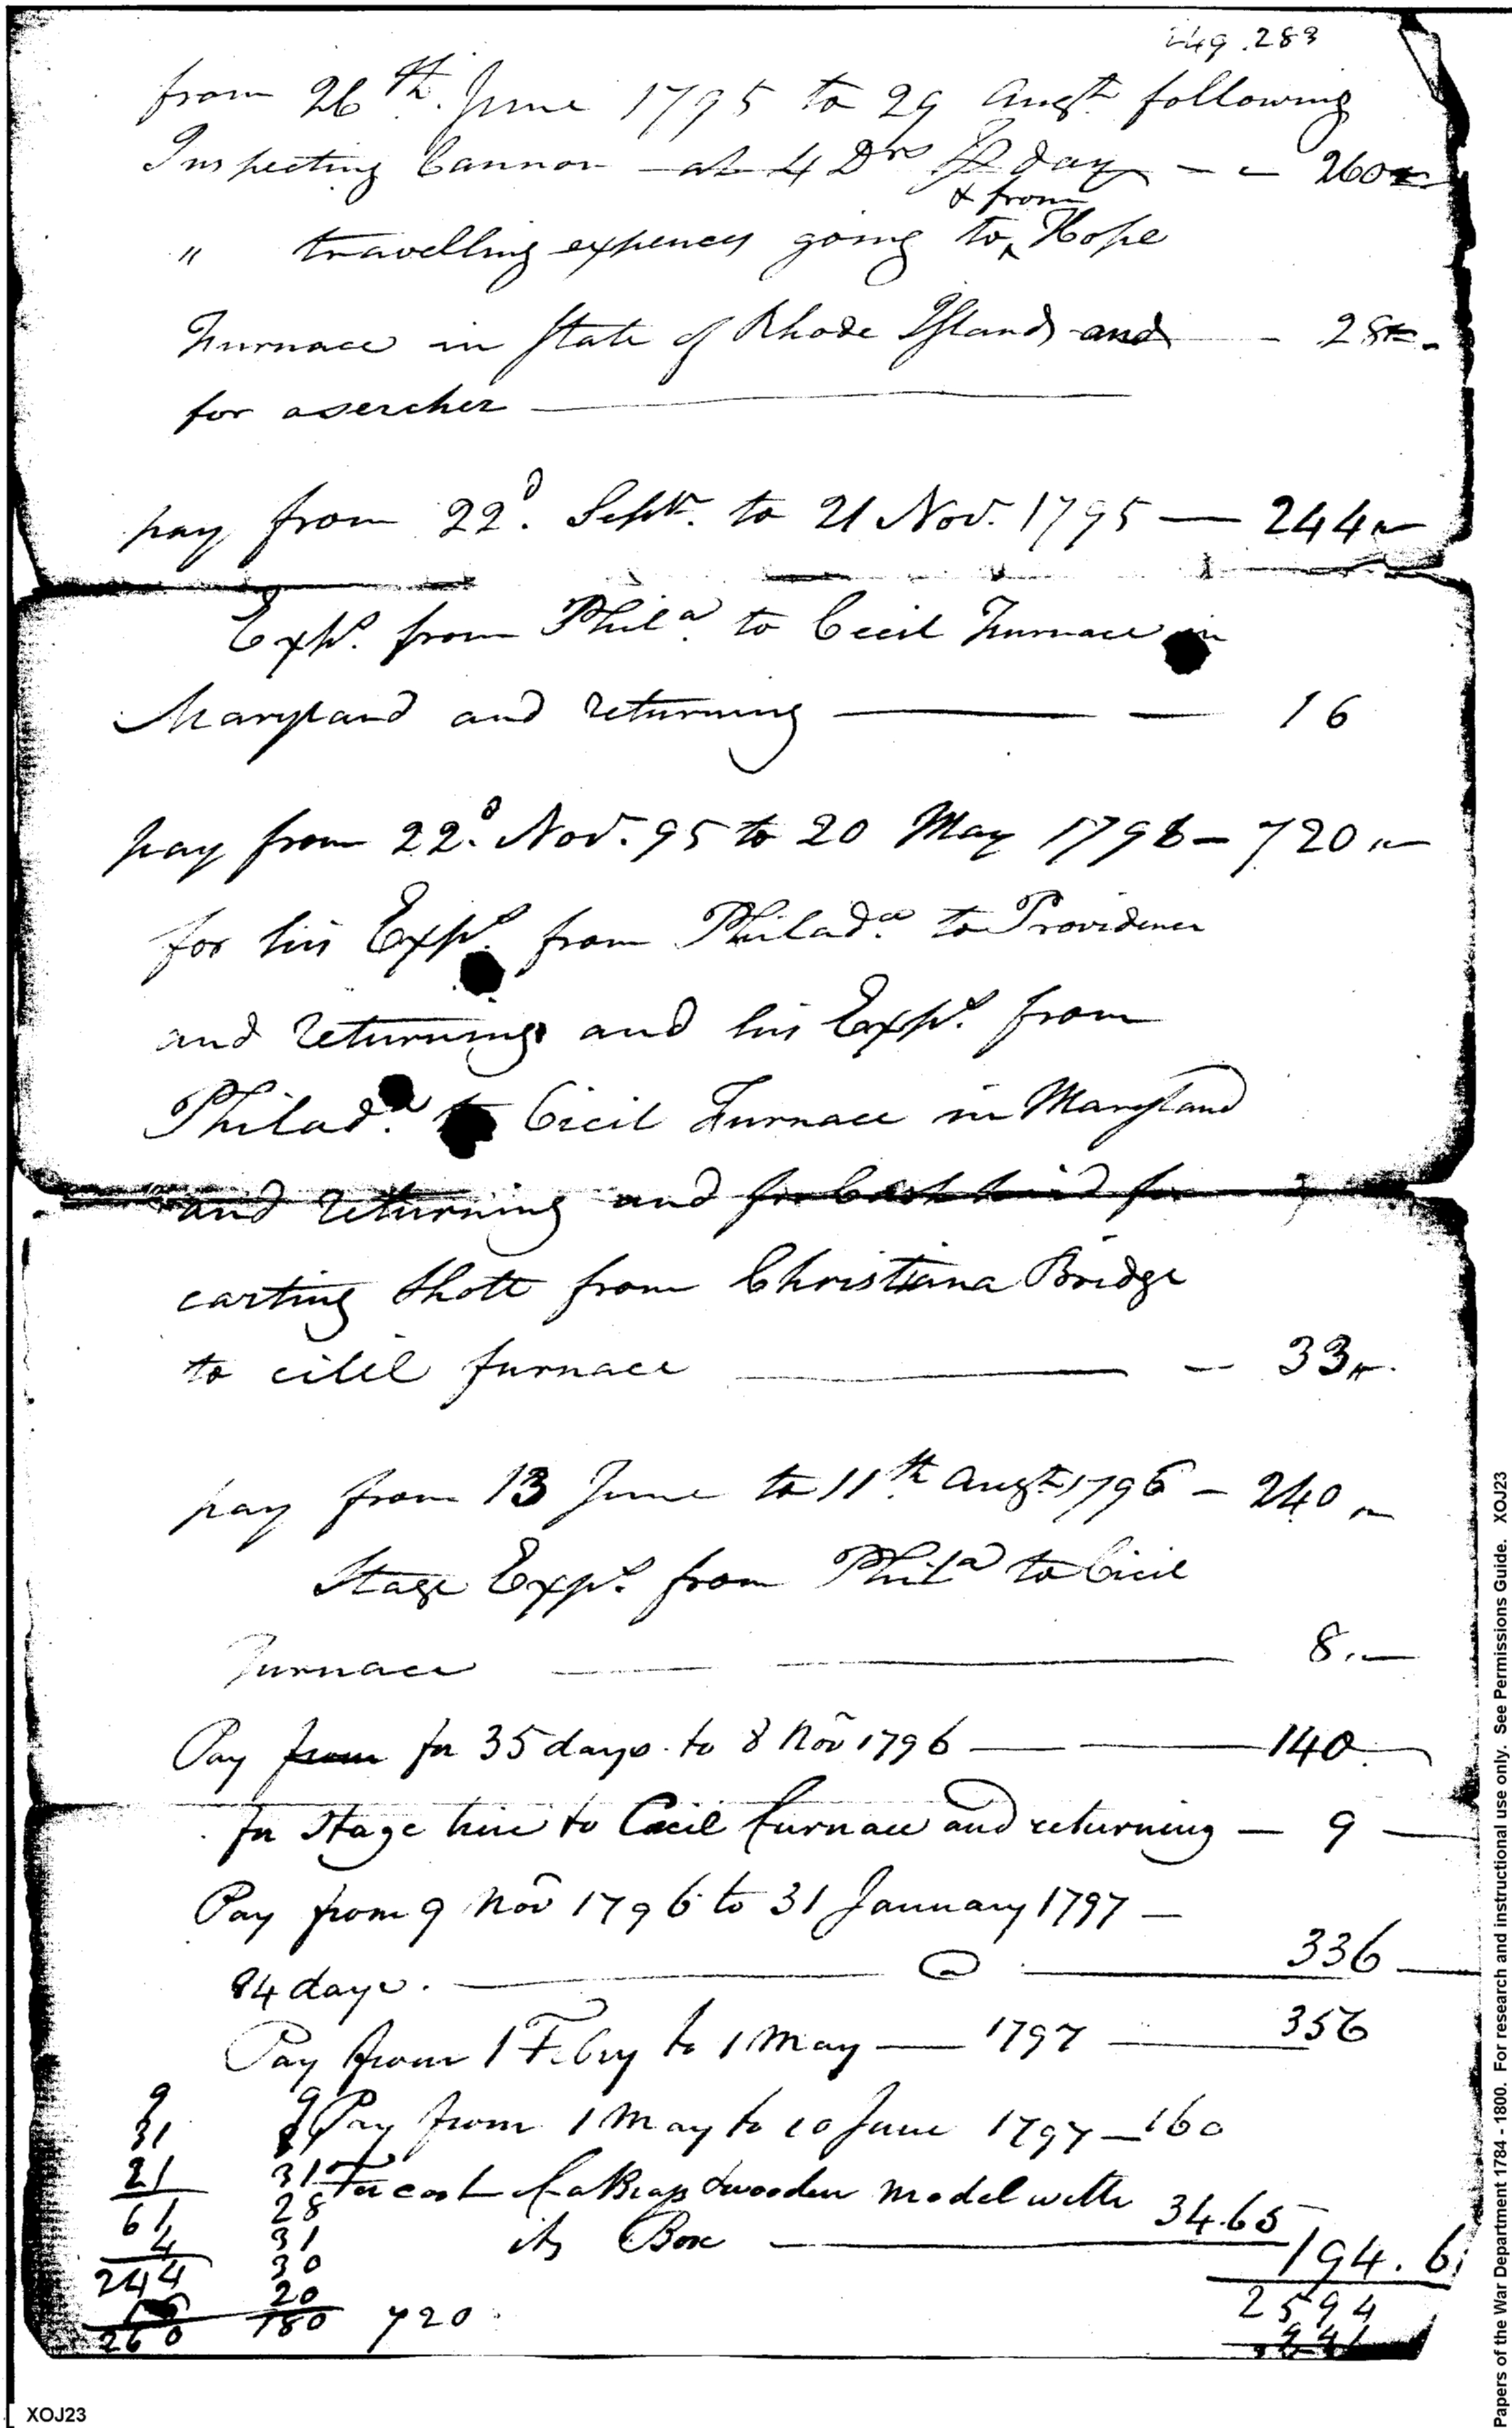 249.283
from 26th. June 1795 to 29 Augt. following
Inspecting Cannon at 4 Drs P day - - 260
& from
" travelling expences going to ^ Hope
Furnace in State of Rhode Island and - 28
for asercher
pay from 22d. Septr. to 21 Nov. 1795 — 244
Exps. from Phila. to Cecil Furnace in
Maryland and returning — 16
pay from 22d. Nov. 95 to 20 May 1796 - 720
for his Exps. from Philada. to Providence
and returning and his Exps. from
Philada. to Cicil Furnace in Maryland
and returning and for Cash paid for
carting Shott from Christiana Bridge
to cilil furnace — 33
pay from 13 June to 11th Augt 1796 - 240
Stage Exps. from Phila to Cicil
Furnace — 8
Pay from for 35 days to 8 Nov 1796 — 140
for Stage hire to Cecil furnace and returning — 9
Pay from 9 Nov 1796 to 31 January 1797 —
84 days. — @ — 336
Pay from 1 Febry to 1 May — 1797 — 356
9 9 Pay from 1 May to 10 June 1797 — 160
31
21 31 For cost of a Brass & wooden model with 34.65
61 28 its Box — 194.6
4 31
244 30
20 2594
260 180 720
XOJ23
Papers of the War Department 1784 - 1800. For research and instructional use only. See Permissions Guide. XOJ23